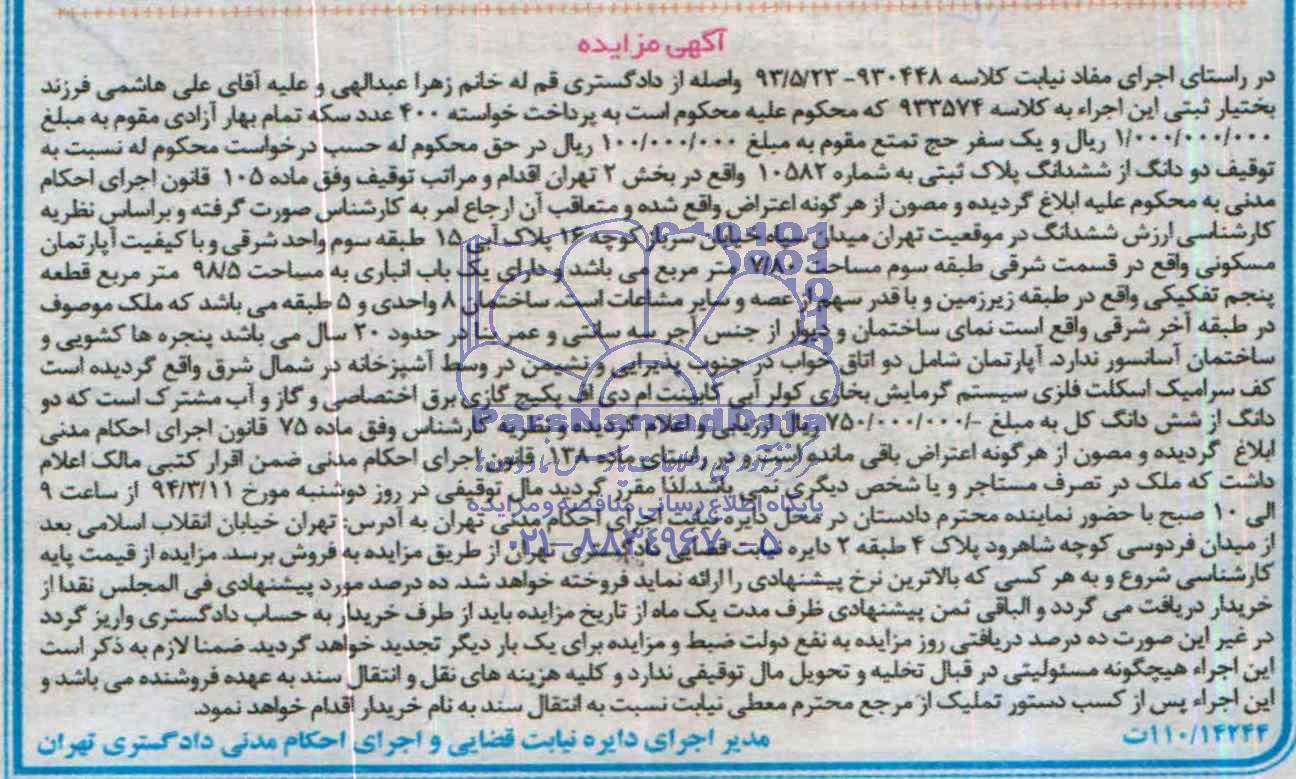 آگهی مزایده
در راستای اجرای مفاد نیابت کلاسه ۹۳۰۴۴۸-۹۳/۵/۲۳ واصله از دادگستری قم له خانم زهرا عبدالهی و علیه آقای علی هاشمی فرزند
بختیار ثبتی این اجراء به کلاسه ۹۳۳۵۷۴ که محکوم علیه محکوم است به پرداخت خواسته ۴۰۰ عدد سکه تمام بهار آزادی مقوم به مبلغ
۱/۰۰۰/۰۰۰/۰۰۰ ریال و یک سفر حج تمتع مقوم به مبلغ ۱۰۰/۰۰۰/۰۰۰ ریال در حق محکوم له حسب درخواست محکوم له نسبت به
توقیف دو دانگ از ششدانگ پلاک ثبتی به شماره ۱۰۵۸۲ واقع در بخش ۲ تهران اقدام و مراتب توقیف وفق ماده ۱۰۵ قانون اجرای احکام
مدنی به محکوم علیه ابلاغ گردیده و مصون از هر گونه اعتراض واقع شده و متعاقب آن ارجاع امر به کارشناس صورت گرفته و براساس نظریه
کارشناسی ارزش ششدانگ در موقعیت تهران میدان سپاه خیابان سرباز کوچه ۱۶ پلاک آبی ۱۵ طبقه سوم واحد شرقی و با کیفیت آپارتمان
مسکونی واقع در قسمت شرقی طبقه سوم مساحت ۷/۸۰ متر مربع می باشد و دارای یک باب انباری به مساحت ۹۸/۵ متر مربع قطعه
پنجم تفکیکی واقع در طبقه زیرزمین و با قدر سهم از عصه و سایر مشاعات است. ساختمان ۸ واحدی و ۵ طبقه می باشد که ملک موصوف
در طبقه آخر شرقی واقع است نمای ساختمان و دیوار از جنس آجر سه سانتی و عمر بنا در حدود ۲۰ سال می باشد پنجره ها کشویی و
ساختمان آسانسور ندارد. آپارتمان شامل دو اتاق خواب در جنوب پذیرایی و نشیمن در وسط آشپزخانه در شمال شرق واقع گردیده است
کف سرامیک اسکلت فلزی سیستم گرمایش بخاری کولر آبی کابینت ام دی اف پکیج گازی برق اختصاصی و گاز و آب مشترک است که دو
دانگ از شش دانگ کل به مبلغ -/۷۵۰/۰۰۰/۰۰۰ ریال ارزیابی و اعلام گردیده و نظریه کارشناس وفق ماده ۷۵ قانون اجرای احکام مدنی
ابلاغ گردیده و مصون از هر گونه اعتراض باقی مانده است و در راستای ماده ۱۳۸ قانون اجرای احکام مدنی ضمن اقرار کتبی مالک اعلام
داشت که ملک در تصرف مستاجر و یا شخص دیگری نمی باشد لذا مقرر گردید مال توقیفی در روز دوشنبه مورخ ۹۴/۳/۱۱ از ساعت ۹
الی ۱۰ صبح با حضور نماینده محترم دادستان در محل دایره نیابت اجرای احکام مدنی تهران به آدرس: تهران خیابان انقلاب اسلامی بعد
از میدان فردوسی کوچه شاهرود پلاک ۴ طبقه ۲ دایره نیابت قضایی دادگستری تهران از طریق مزایده به فروش برسد. مزایده از قیمت پایه
کارشناسی شروع و به هر کسی که بالاترین نرخ پیشنهادی را ارائه نماید فروخته خواهد شد. ده درصد مورد پیشنهادی فی المجلس نقدا از
خریدار دریافت می گردد و الباقی ثمن پیشنهادی ظرف مدت یک ماه از تاریخ مزایده باید از طرف خریدار به حساب دادگستری واریز گردد
در غیر این صورت ده درصد دریافتی روز مزایده به نفع دولت ضبط و مزایده برای یک بار دیگر تجدید خواهد گردید. ضمنا لازم به ذکر است
این اجراء هیچگونه مسئولیتی در قبال تخلیه و تحویل مال توقیفی ندارد و کلیه هزینه های نقل و انتقال سند به عهده فروشنده می باشد و
این اجراء پس از کسب دستور تملیک از مرجع محترم معطی نیابت نسبت به انتقال سند به نام خریدار اقدام خواهد نمود.
۱۱۰/۱۴۲۴۴ت
مدیر اجرای دایره نیابت قضایی و اجرای احکام مدنی دادگستری تهران
ParsNamadData
پایگاه اطلاع رسانی مناقصه و مزایده
۰۲۱-۸۸۳۴۹۶۷۰-۵